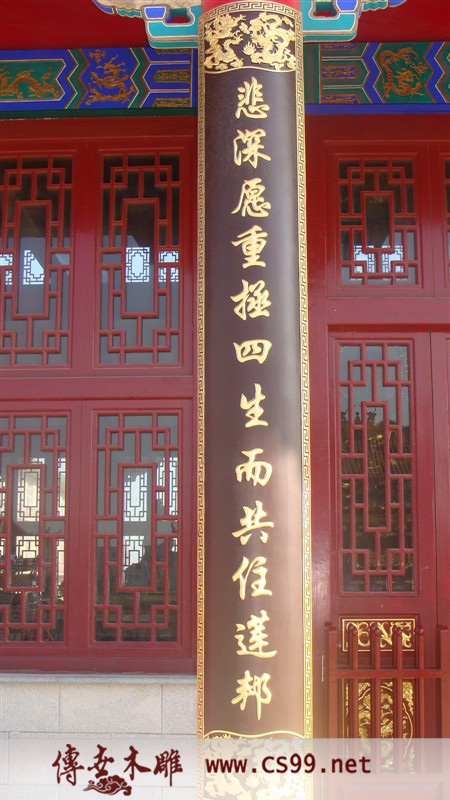 悲深愿重極四生而共住莲邦
傳世木雕 www.cs99.net